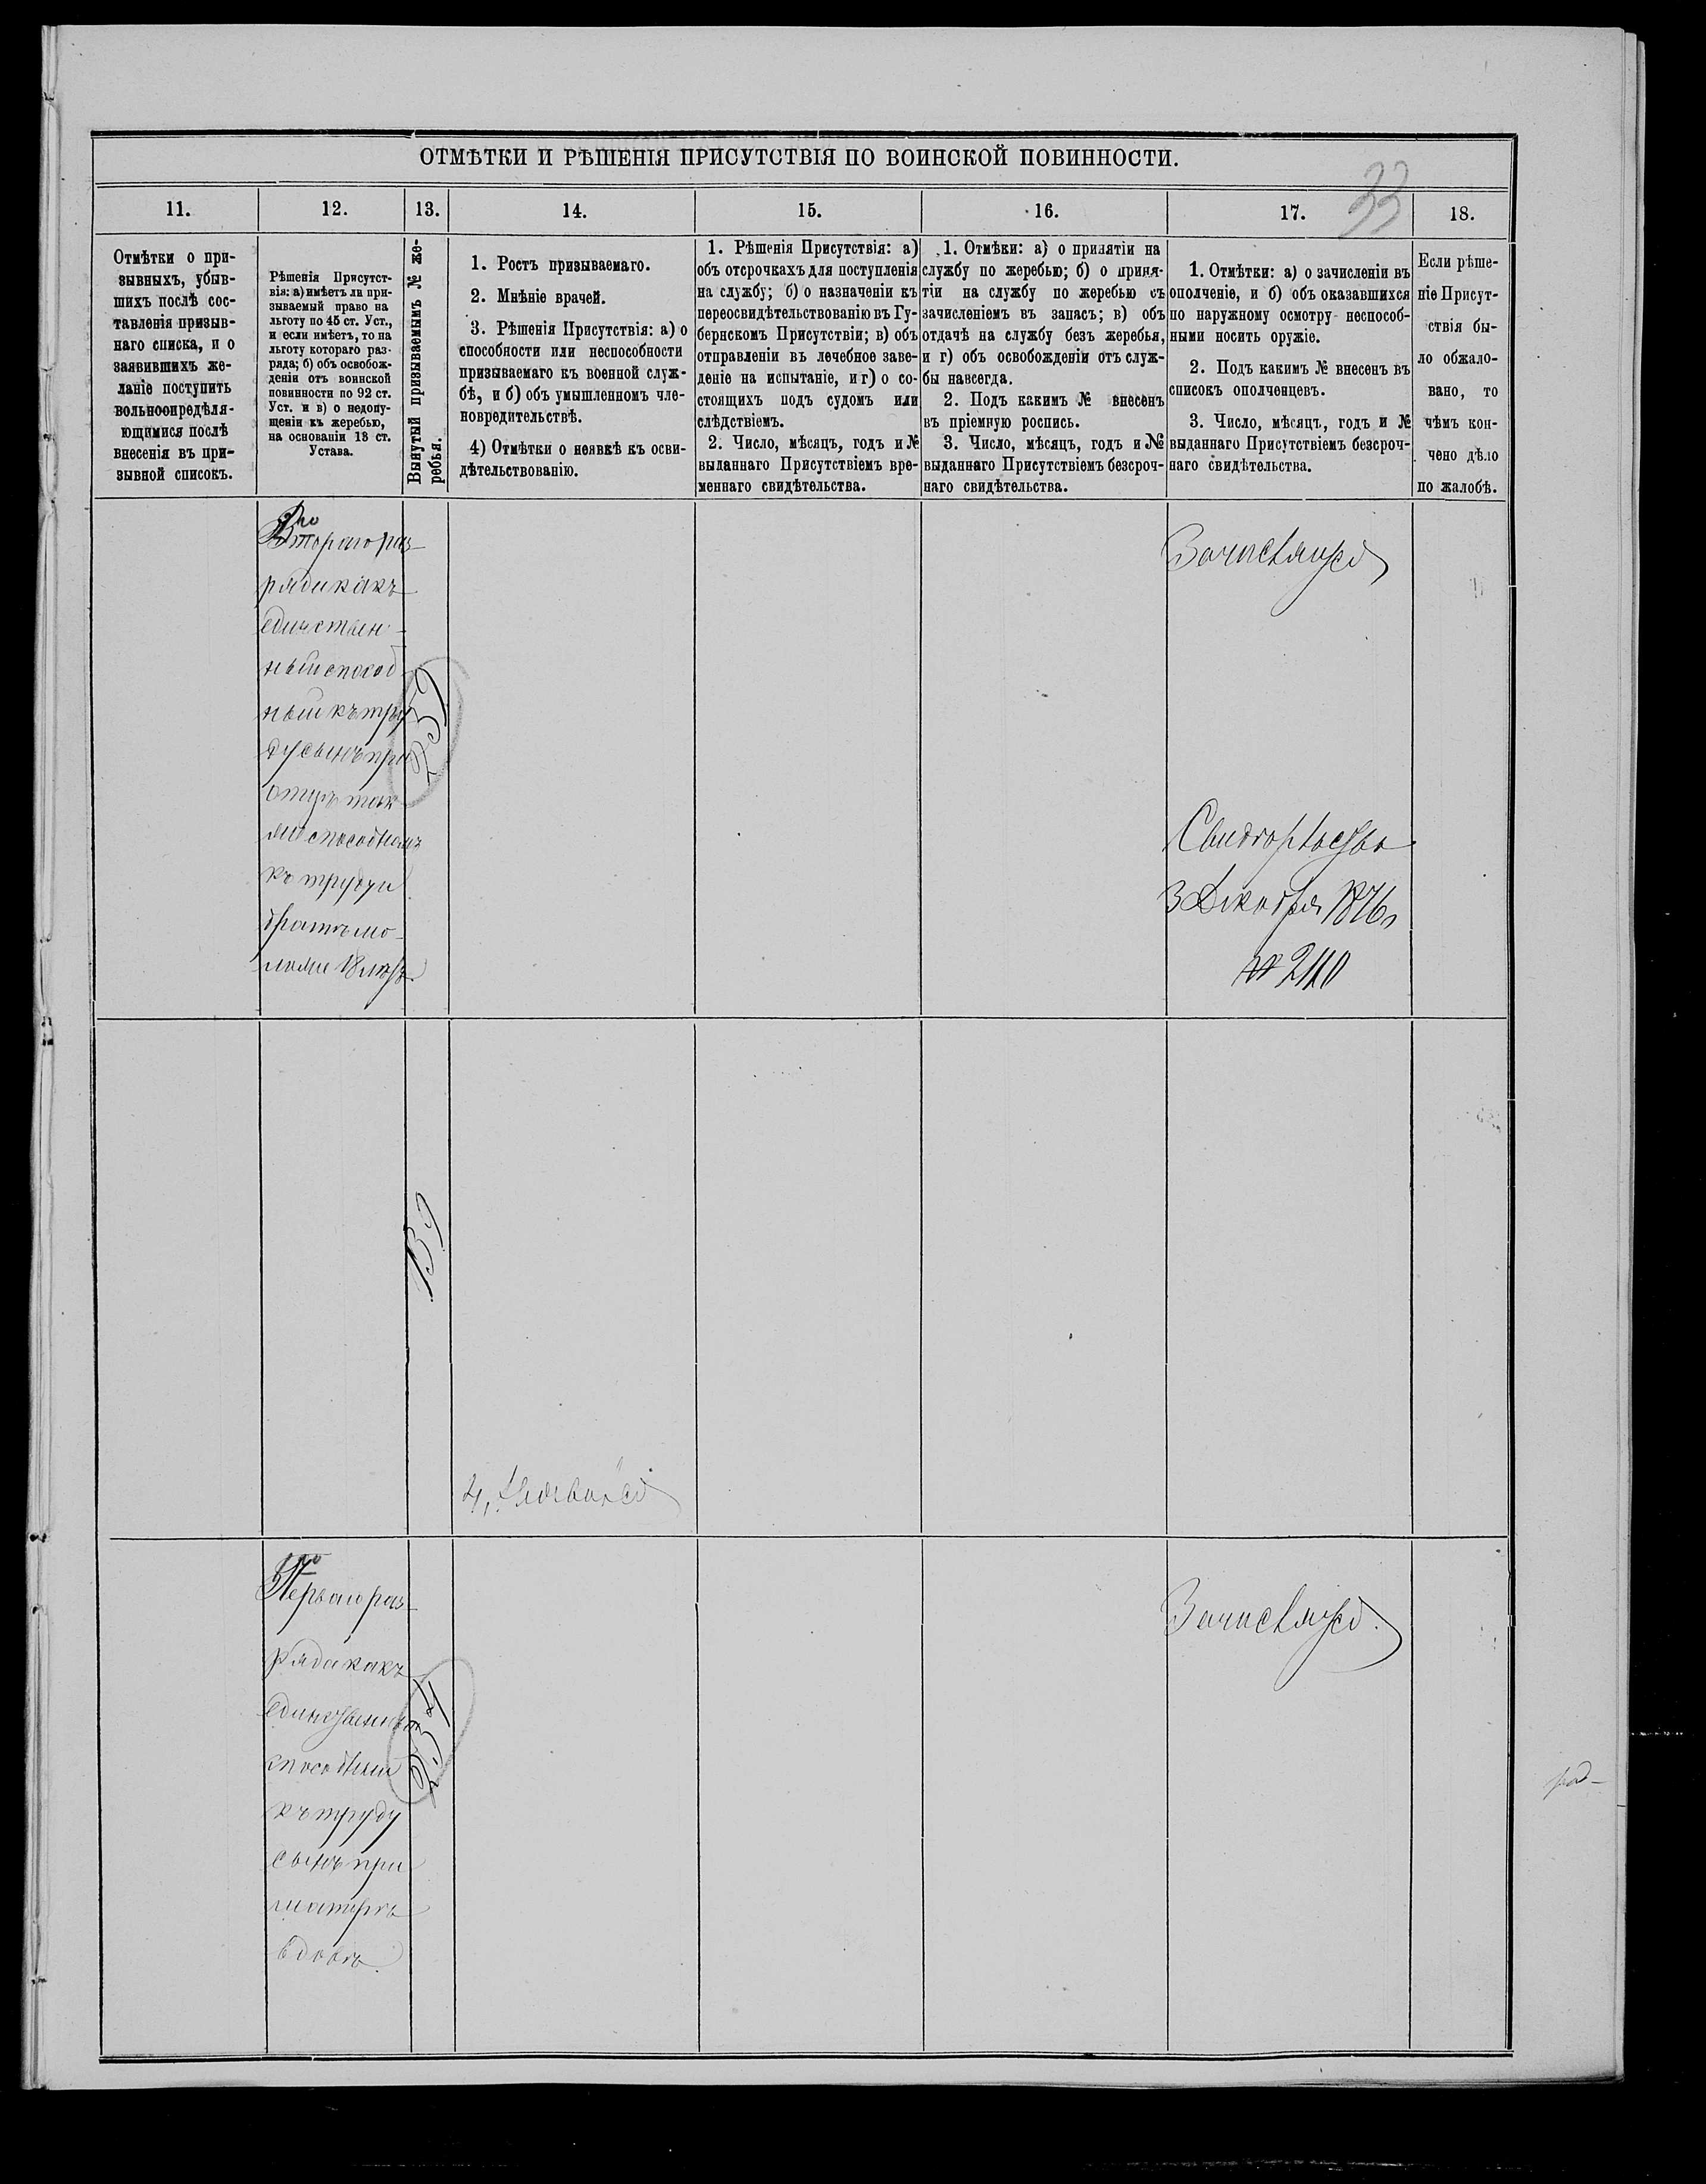 ОТМѢТКИ И РѢШЕНІЯ ПРИСУТСТВІЯ ПО ВОИНСКОЙ ПОВИННОСТИ.
33
11.
12.
13.
14.
15.
16.
17.
18.
Отмѣтки о при-
зывныхъ, убыв-
шихъ послѣ сос-
тавленія призыв-
наго списка, и о
заявившихъ же-
ланіе поступить
вольноопредѣля-
ющимися послѣ
внесенія въ при-
зывной списокъ.
Рѣшенія Присутст-
вія: а) имѣетъ ли при-
зываемый право на
льготу по 45 ст. Уст.,
и если имѣетъ, то на
льготу котораго раз-
ряда; б) объ освобож-
деніи отъ воинской
повинности по 92 ст.
Уст. и в) о недопу-
щеніи къ жеребью,
на основаніи 13 ст.
Устава.
Вынутый призываемымъ № же-
ребья.
1. Ростъ призываемаго.
2. Мнѣніе врачей.
3. Рѣшенія Присутствія: а) о
способности или неспособности
призываемаго къ военной служ-
бѣ, и б) объ умышленномъ чле-
новредительствѣ.
4) Отмѣтки о неявкѣ къ осви-
дѣтельствованію.
1. Рѣшенія Присутствія: а)
объ отсрочкахъ для поступленія
на службу; б) о назначеніи къ
переосвидѣтельствованію въ Гу-
бернскомъ Присутствіи; в) объ
отправленіи въ лечебное заве-
деніе на испытаніе, и г) о со-
стоящихъ подъ судомъ или
слѣдствіемъ.
2. Число, мѣсяцъ, годъ и №
выданнаго Присутствіемъ вре-
меннаго свидѣтельства.
1. Отмѣки: а) о принятіи на
службу по жеребью; б) о приня-
тіи на службу по жеребью съ
зачисленіемъ въ запасъ; в) объ
отдачѣ на службу безъ жеребья,
и г) объ освобожденіи отъ служ-
бы навсегда.
2. Подъ какимъ № внесенъ
въ пріемную роспись.
3. Число, мѣсяцъ, годъ и №
выданнаго Присутствіемъ безсроч-
наго свидѣтельства.
1. Отмѣтки: а) о зачисленіи въ
ополченіе, и б) объ оказавшихся
по наружному осмотру неспособ-
ными носить оружіе.
2. Подъ какимъ № внесенъ въ
списокъ ополченцевъ.
3. Число, мѣсяцъ, годъ и №
выданнаго Присутствіемъ безсроч-
наго свидѣтельства.
Если рѣше-
ніе Присут-
ствія бы-
ло обжало-
вано, то
чѣмъ кон-
чено дѣло
по жалобѣ.
Втораго раз-
ряда какъ
единствен-
ный способ
ный къ тру
ду сынъ при
отцѣ
способномъ
къ труду и
братьѣ мо-
ложе 18 лѣтъ
259
Зачисляется
Свидѣтельство
3 Декабря 1876
№ 2110
139
4, Неявился
Перваго раз-
ряда какъ
единственный
способный
къ труду
сынъ при
матери
вдовѣ.
234
Зачисляется.